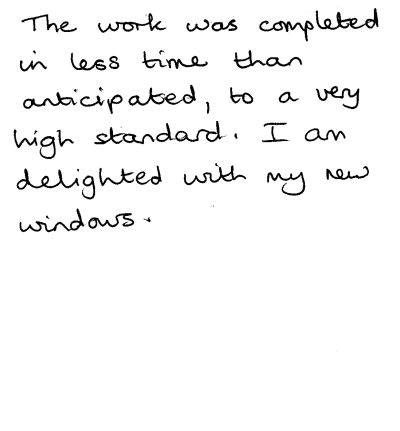 The work was completed
in less time than
anticipated, to a very
high standard. I am
delighted with my new
windows.